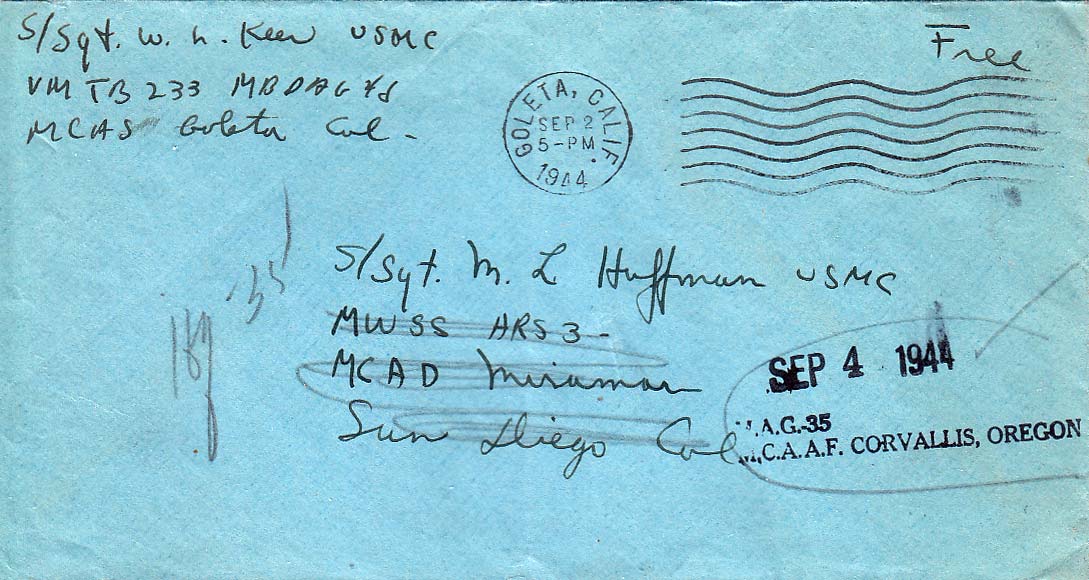 S/Sgt. W. L. Keer USMC
VMTB 233 MBDAG 48
MCAS Goleta Cal -
Free
GOLETA, CALIF.
SEP 2
5-PM
1944
S/Sgt. M. L Huffman USMC
MWSS ARS 3-
MCAD Miramar
San Diego Cal
SEP 4 1944
.A.G.-35
M.C.A.A.F. CORVALLIS, OREGON
35